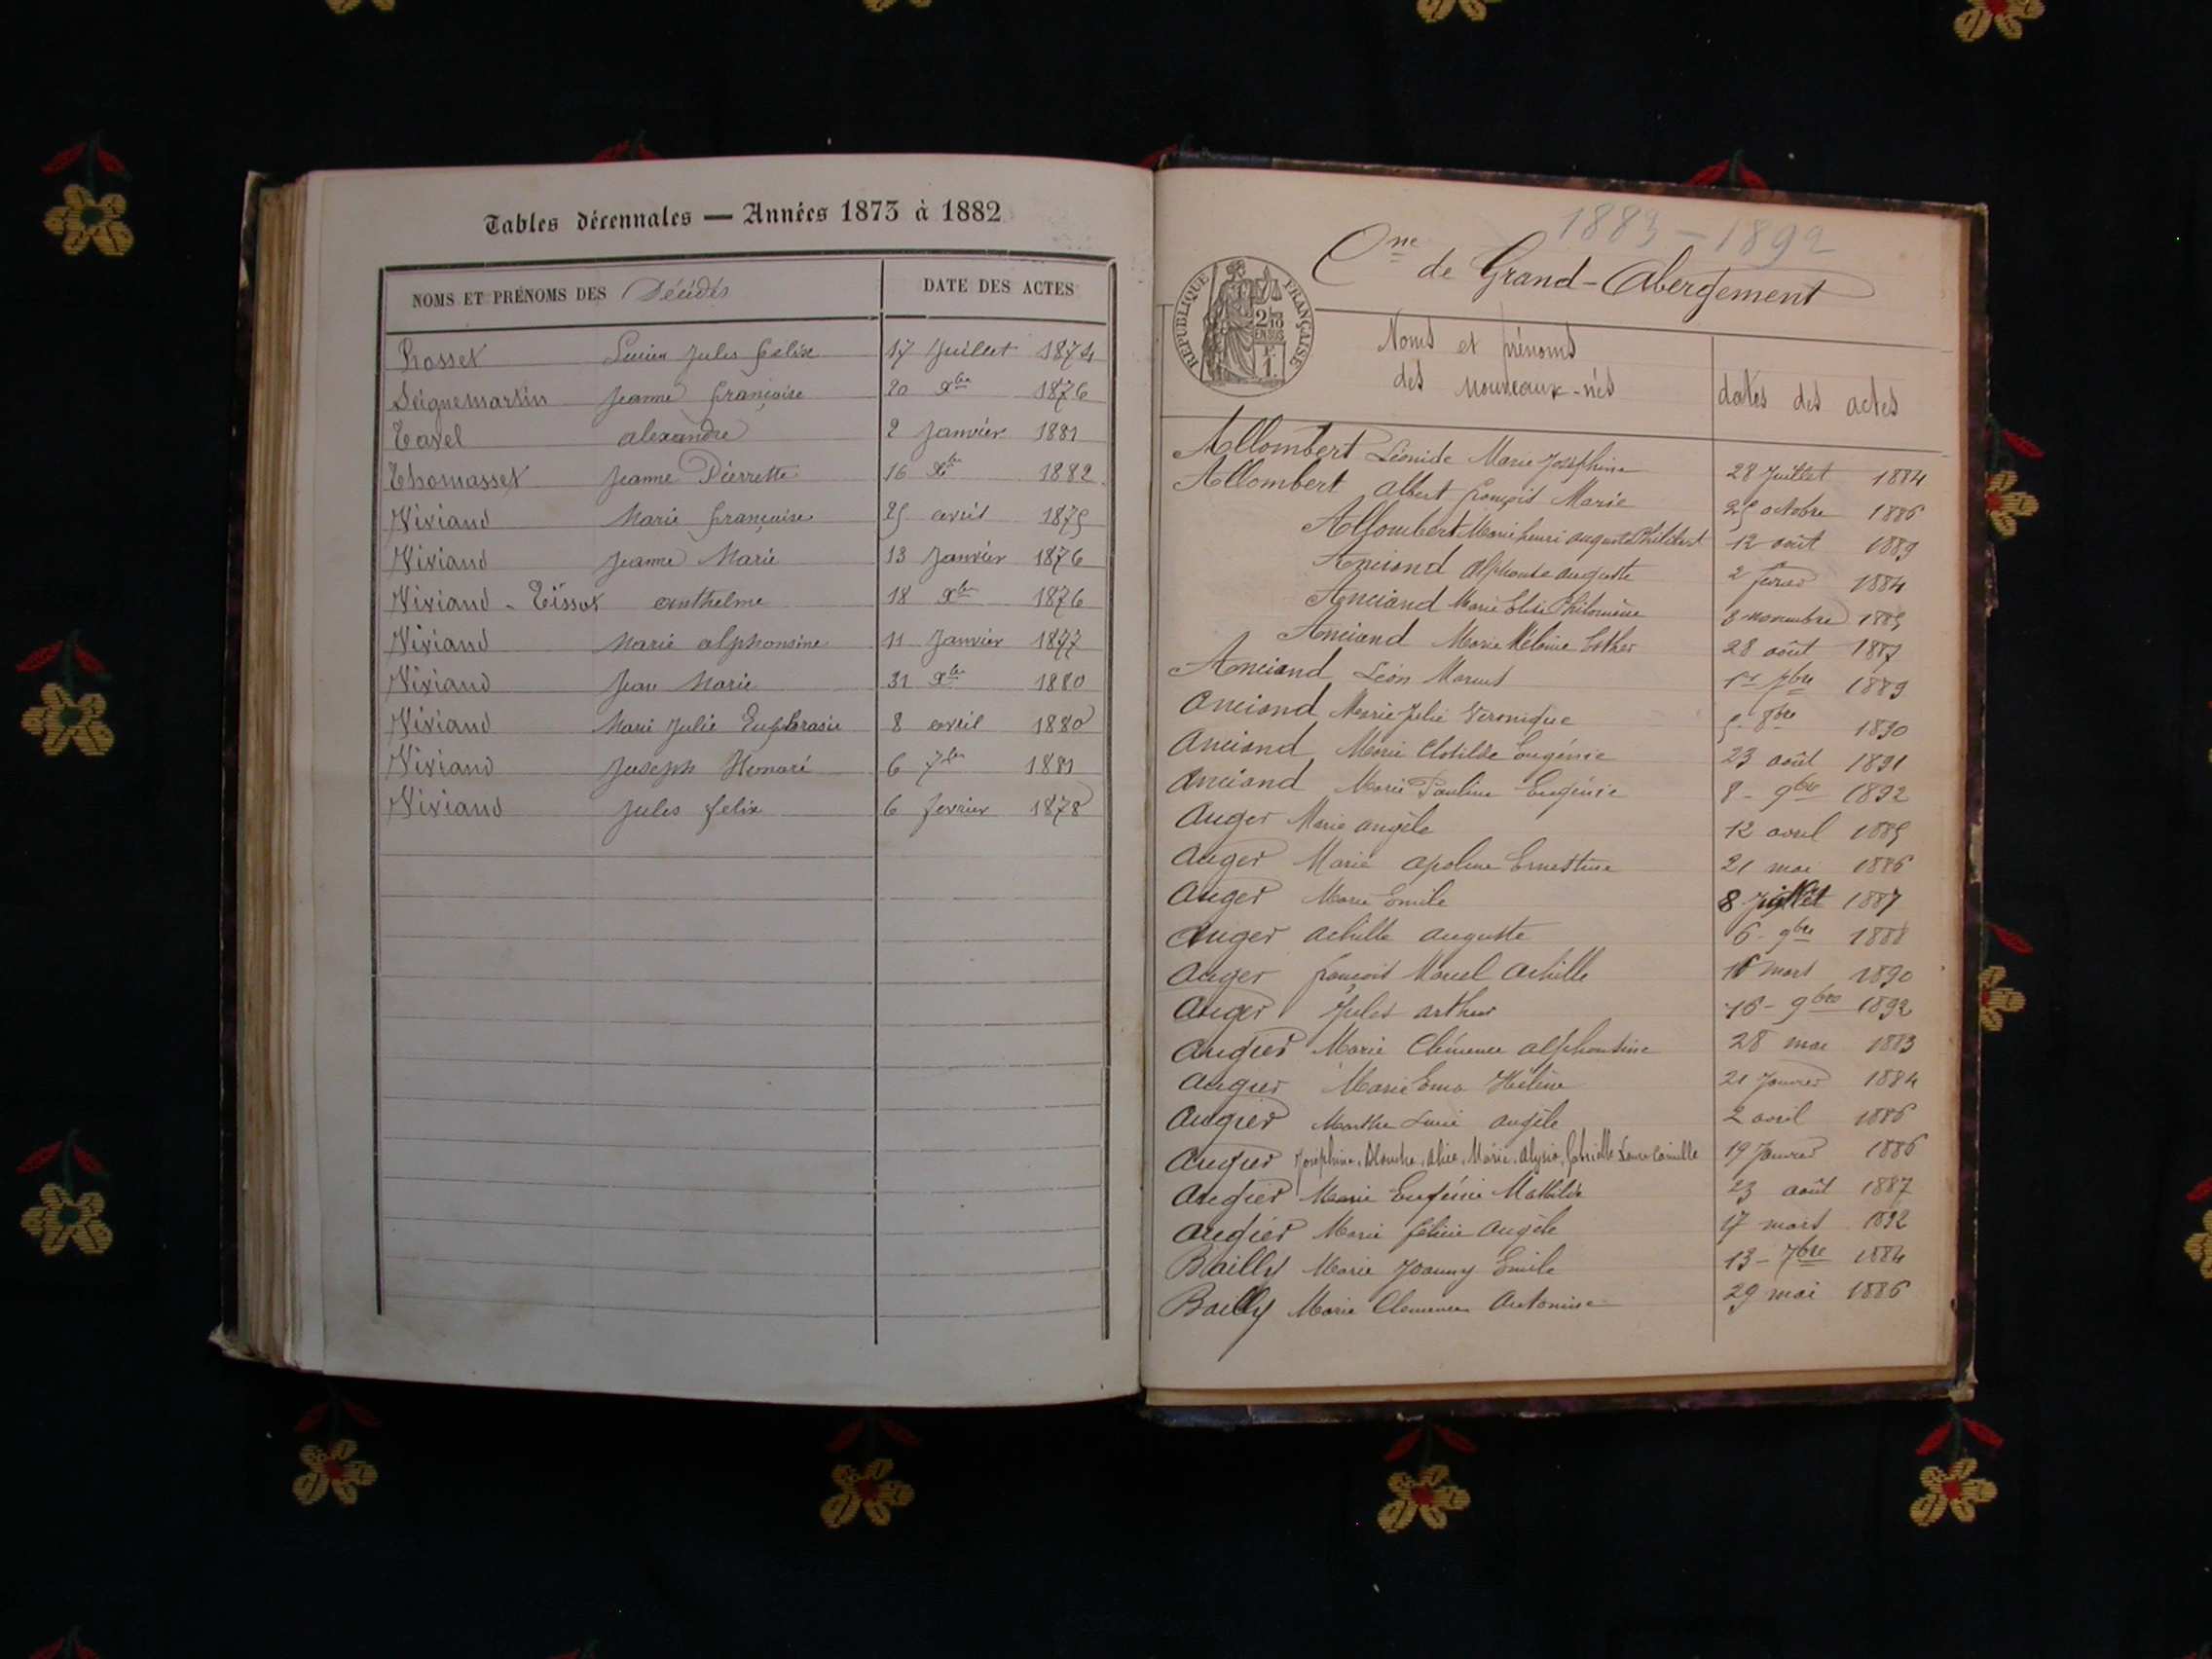 Tables décennales — Années 1873 à 1882
NOMS ET PRÉNOMS DES Décédés DATE DES ACTES
Rosset Lucien Jules felix 17 Juillet 1874
Seignemartin Jeanne françoise 20 Xbre 1876
Tavel alexandre 2 Janvier 1881
Thomasset Jeanne Pierrette 16 Xbre 1882
Viviand Marie françoise 25 avril 1875
Viviand Jeanne Marie 13 Janvier 1876
Viviand - Tissot anthelme 18 Xbre 1876
Viviand Marie alphonsine 11 Janvier 1877
Viviand Jean Marie 31 Xbre 1880
Viviand Marie Julie Euphrasie 8 avril 1880
Viviand Joseph Honoré 6 7bre 1881
Viviand Jules felix 6 fevrier 1878
1883 - 1892
Cne de Grand-Abergement
RÉPUBLIQUE FRANÇAISE
2/10 EN SUS
1 F.
Noms et prénoms
des nouveaux-nés dates des actes
Allombert Léonide Marie Joséphine 28 Juillet 1884
Allombert albert françois Marie 25 octobre 1886
Allombert Marie henri auguste Philibert 12 août 1889
Anciand alphonse auguste 2 février 1884
Anciand Marie Elise Philomène 8 novembre 1885
Anciand Marie Mélanie Esther 28 août 1887
Anciand Léon Marius 1er 7bre 1889
Anciand Marie Julie Veronique 5 - 8bre 1890
Anciand Marie Clotilde Eugénie 23 août 1891
Anciand Marie Pauline Eugénie 8 - 9bre 1892
Auger Marie angèle 12 avril 1885
Auger Marie apoline Ernestine 21 mai 1886
Auger Marie Emile 8 Juillet 1887
Auger achille auguste 6 - 9bre 1888
Auger françois Marcel achille mars 1890
Auger Jules arthur 16 - 9bre 1892
Augier Marie Clémence alphonsine 28 mai 1883
Augier Marie Ema Hélène 21 Janvier 1884
Augier Marthe Lucie angèle 2 avril 1886
Augier Joséphine, Blanche, alice, Marie, Gabrielle Camille 19 Janvier 1886
Augier Marie Eugénie Mathilde 23 août 1887
Augier Marie félicie angèle 17 mars 1892
Bailly Marie Joanny Emile 13 - 7bre 1884
Bailly Marie Clemence Antonine 29 mai 1886